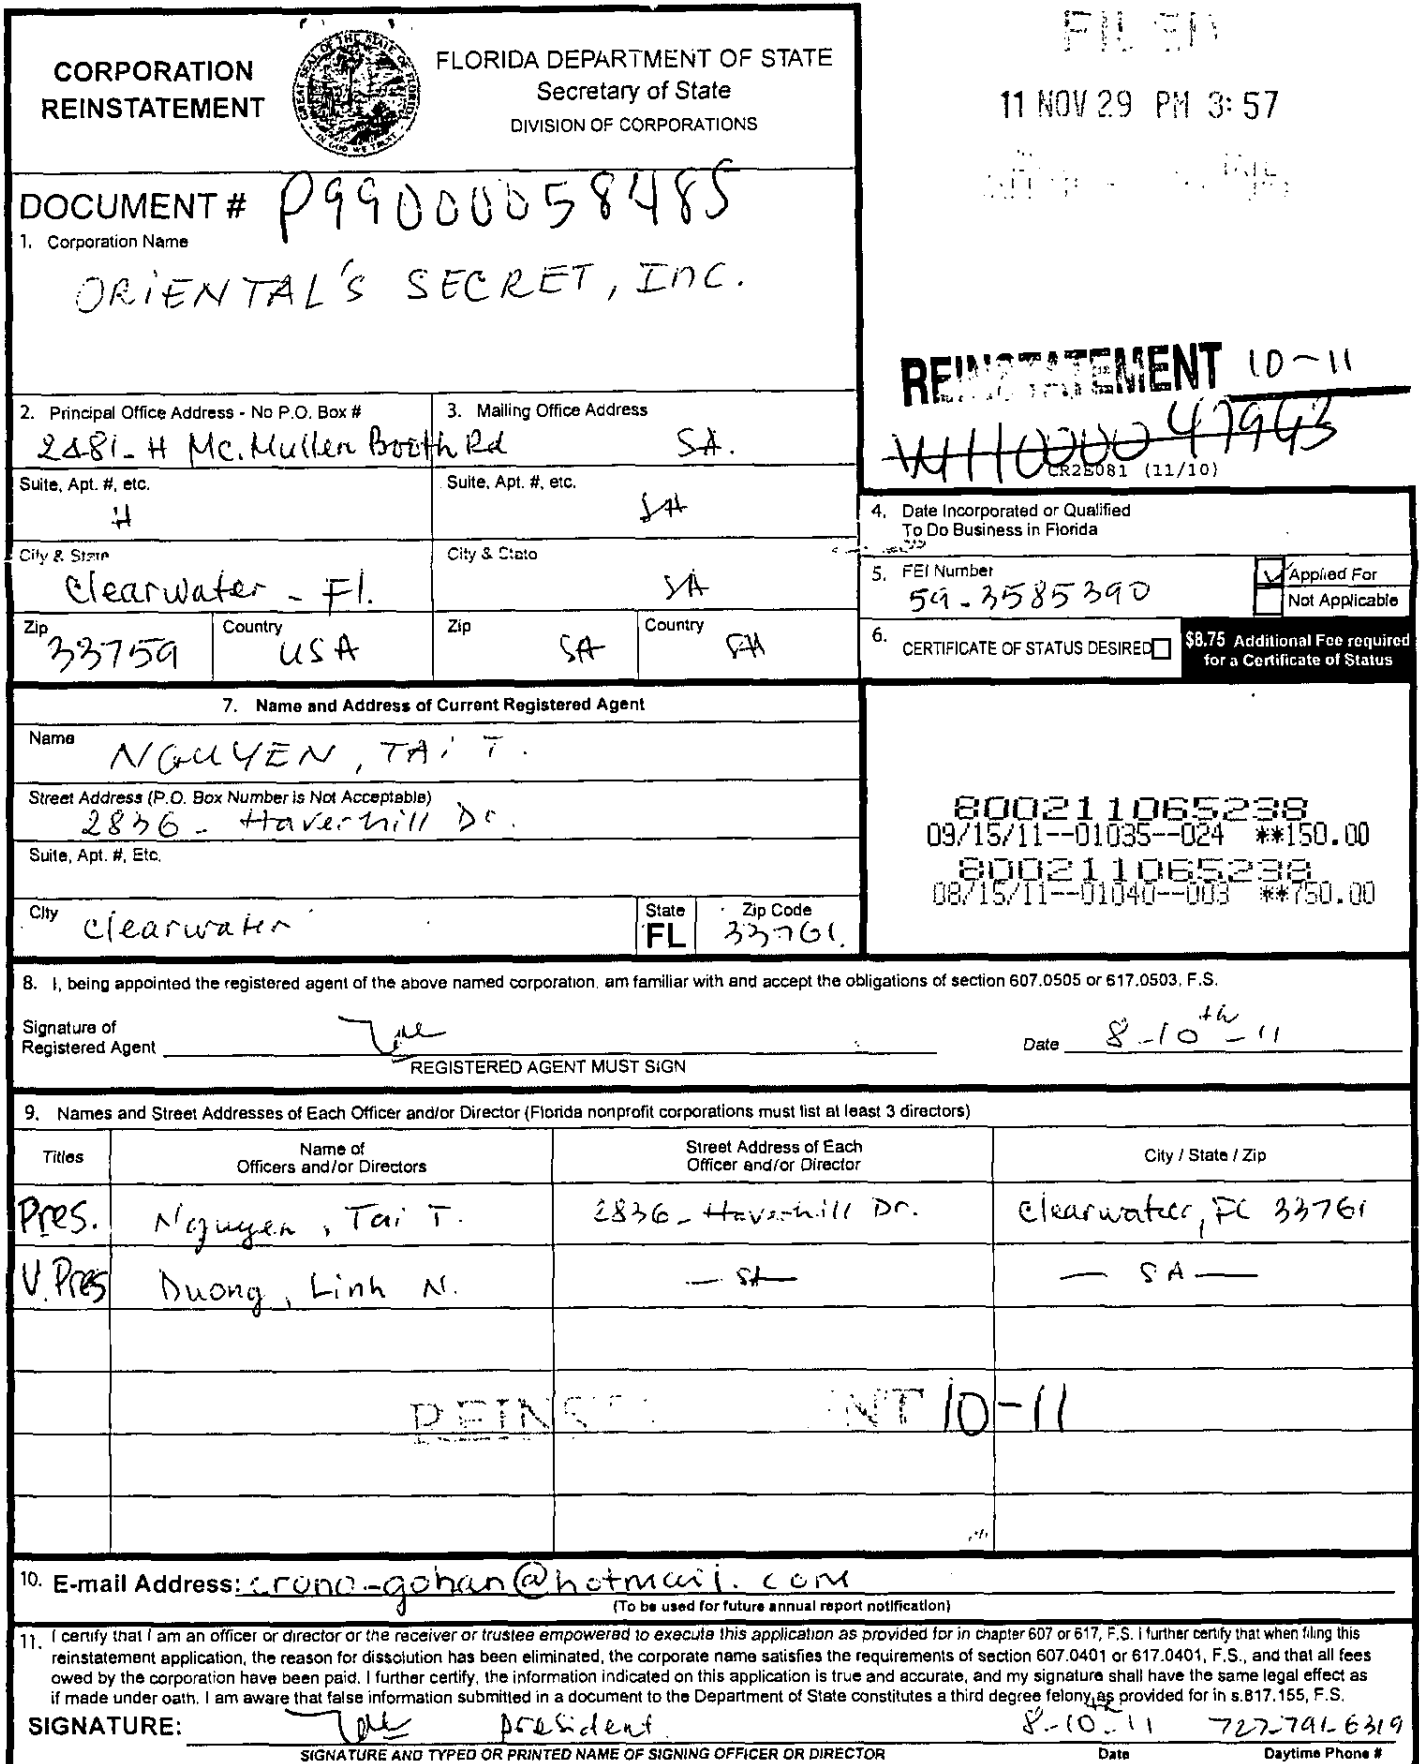 CORPORATION
REINSTATEMENT
GREAT SEAL OF THE STATE OF FLORIDA
IN GOD WE TRUST
FLORIDA DEPARTMENT OF STATE
Secretary of State
DIVISION OF CORPORATIONS
FILED
11 NOV 29 PM 3:57
DOCUMENT # P99000058485
1. Corporation Name
ORIENTAL'S SECRET, INC.
REINSTATEMENT 10-11
W11000047943
CR2E081 (11/10)
2. Principal Office Address - No P.O. Box #
2481-H Mc.Mullen Booth Rd
3. Mailing Office Address
SA.
Suite, Apt. #, etc.
H
Suite, Apt. #, etc.
SA
City & State
Clearwater - Fl.
City & State
SA
Zip
33759
Country
USA
Zip
SA
Country
SA
4. Date Incorporated or Qualified
To Do Business in Florida
5. FEI Number
59-3585390
Applied For
Not Applicable
6. CERTIFICATE OF STATUS DESIRED
$8.75 Additional Fee required
for a Certificate of Status
7. Name and Address of Current Registered Agent
Name
NGUYEN, TAI T.
Street Address (P.O. Box Number is Not Acceptable)
2836 - Haverhill Dr.
Suite, Apt. #, Etc.
City
Clearwater
State
FL
Zip Code
33761.
800211065238
09/15/11--01035--024 **150.00
800211065238
08/15/11--01040--003 **750.00
8. I, being appointed the registered agent of the above named corporation, am familiar with and accept the obligations of section 607.0505 or 617.0503, F.S.
Signature of
Registered Agent
Date 8-10th-11
REGISTERED AGENT MUST SIGN
9. Names and Street Addresses of Each Officer and/or Director (Florida nonprofit corporations must list at least 3 directors)
Titles
Name of
Officers and/or Directors
Street Address of Each
Officer and/or Director
City / State / Zip
Pres. Nguyen, Tai T. 2836 - Haverhill Dr. Clearwater, FL 33761
V. Pres Duong, Linh N. — SA — — SA —
10-11
10. E-mail Address: crono-gohan@hotmail.com
(To be used for future annual report notification)
11. I certify that I am an officer or director or the receiver or trustee empowered to execute this application as provided for in chapter 607 or 617, F.S. I further certify that when filing this
reinstatement application, the reason for dissolution has been eliminated, the corporate name satisfies the requirements of section 607.0401 or 617.0401, F.S., and that all fees
owed by the corporation have been paid. I further certify, the information indicated on this application is true and accurate, and my signature shall have the same legal effect as
if made under oath. I am aware that false information submitted in a document to the Department of State constitutes a third degree felony as provided for in s.817.155, F.S.
SIGNATURE: president 8-10th-11 727-791-6319
SIGNATURE AND TYPED OR PRINTED NAME OF SIGNING OFFICER OR DIRECTOR Date Daytime Phone #